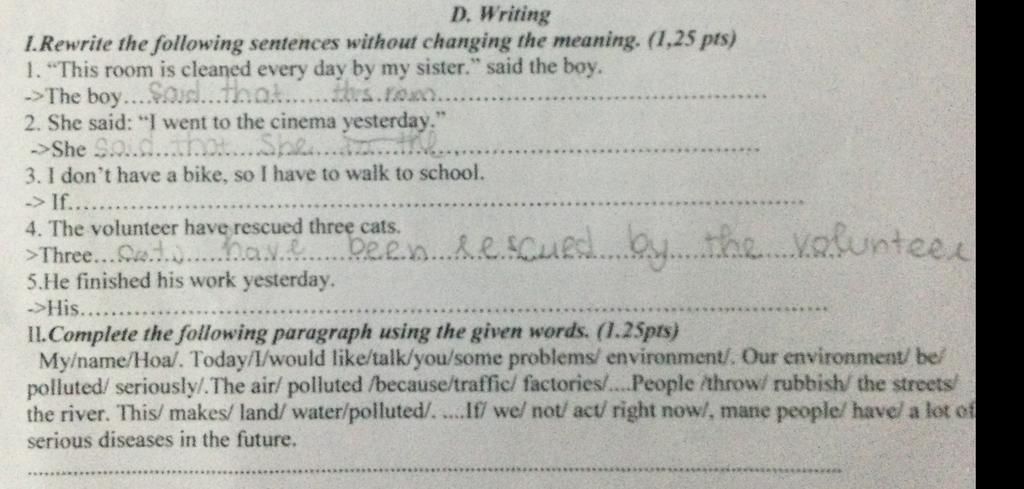 D. Writing
I.Rewrite the following sentences without changing the meaning. (1,25 pts)
1. “This room is cleaned every day by my sister.” said the boy.
->The boy....said...that.......this room...............................................
2. She said: “I went to the cinema yesterday.”
->She said that she to the.................................................
3. I don’t have a bike, so I have to walk to school.
-> If...............................................................................................
4. The volunteer have rescued three cats.
>Three...cats have been rescued by the volunteer
5.He finished his work yesterday.
->His...............................................................................................
II.Complete the following paragraph using the given words. (1.25pts)
My/name/Hoa/. Today/I/would like/talk/you/some problems/ environment/. Our environment/ be/
polluted/ seriously/.The air/ polluted /because/traffic/ factories/....People /throw/ rubbish/ the streets/
the river. This/ makes/ land/ water/polluted/. ....If/ we/ not/ act/ right now/, mane people/ have/ a lot of
serious diseases in the future.